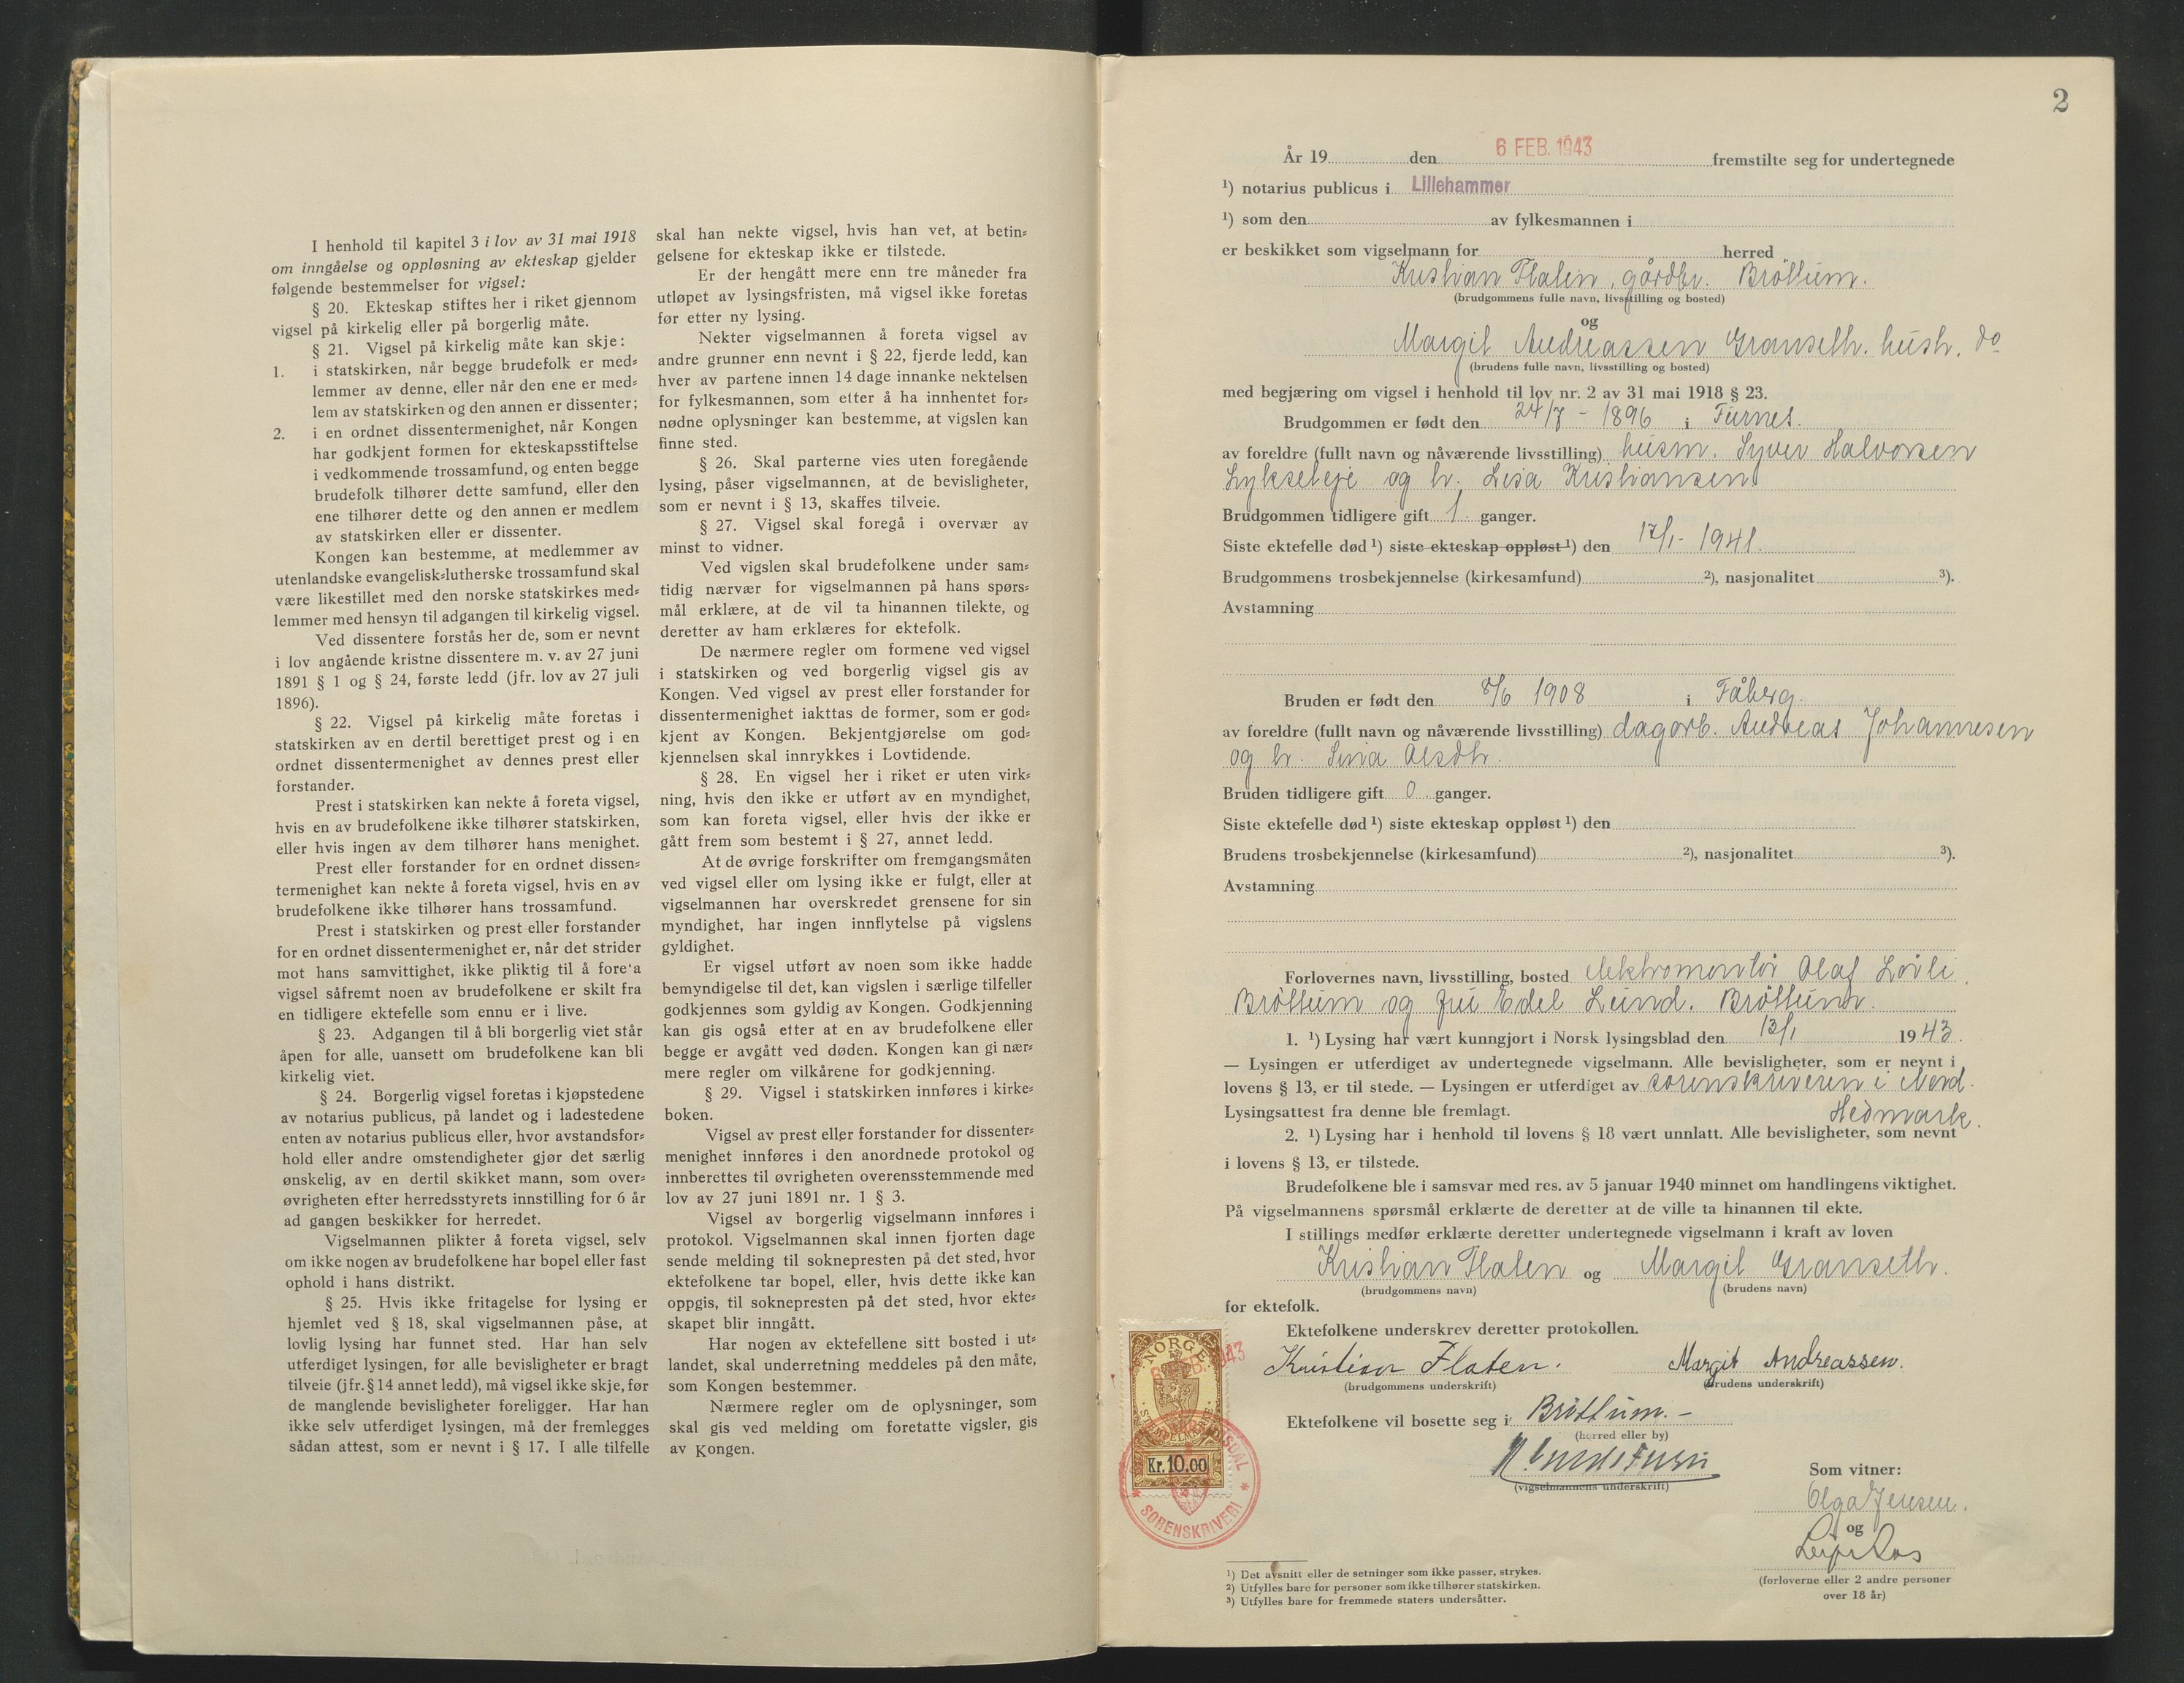 I henhold til kapitel 3 i lov av 31 mai 1918
om inngåelse og oppløsning av ekteskap gjelder
følgende bestemmelser for vigsel:
§ 20. Ekteskap stiftes her i riket gjennom
vigsel på kirkelig eller på borgerlig måte.
§ 21. Vigsel på kirkelig måte kan skje:
1. i statskirken, når begge brudefolk er med-
lemmer av denne, eller når den ene er med-
lem av statskirken og den annen er dissenter;
2. i en ordnet dissentermenighet, når Kongen
har godkjent formen for ekteskapsstiftelse
i vedkommende trossamfund, og enten begge
brudefolk tilhører dette samfund, eller den
ene tilhører dette og den annen er medlem
av statskirken eller er dissenter.
Kongen kan bestemme, at medlemmer av
utenlandske evangelisk-lutherske trossamfund skal
være likestillet med den norske statskirkes med-
lemmer med hensyn til adgangen til kirkelig vigsel.
Ved dissentere forstås her de, som er nevnt
i lov angående kristne dissentere m. v. av 27 juni
1891 § 1 og § 24, første ledd (jfr. lov av 27 juli
1896).
§ 22. Vigsel på kirkelig måte foretas i
statskirken av en dertil berettiget prest og i en
ordnet dissentermenighet av dennes prest eller
forstander.
Prest i statskirken kan nekte å foreta vigsel,
hvis en av brudefolkene ikke tilhører statskirken,
eller hvis ingen av dem tilhører hans menighet.
Prest eller forstander for en ordnet dissen-
termenighet kan nekte å foreta vigsel, hvis en av
brudefolkene ikke tilhører hans trossamfund.
Prest i statskirken og prest eller forstander
for en ordnet dissentermenighet er, når det strider
mot hans samvittighet, ikke pliktig til å fore'a
vigsel såfremt noen av brudefolkene er skilt fra
en tidligere ektefelle som ennu er i live.
§ 23. Adgangen til å bli borgerlig viet står
åpen for alle, uansett om brudefolkene kan bli
kirkelig viet.
§ 24. Borgerlig vigsel foretas i kjøpstedene
av notarius publicus, på landet og i ladestedene
enten av notarius publicus eller, hvor avstandsfor-
hold eller andre omstendigheter gjør det særlig
ønskelig, av en dertil skikket mann, som over-
øvrigheten efter herredsstyrets innstilling for 6 år
ad gangen beskikker for herredet.
Vigselmannen plikter å foreta vigsel, selv
om ikke nogen av brudefolkene har bopel eller fast
ophold i hans distrikt.
§ 25. Hvis ikke fritagelse for lysing er
hjemlet ved § 18, skal vigselmannen påse, at
lovlig lysing har funnet sted. Har han selv
utferdiget lysingen, før alle bevisligheter er bragt
tilveie (jfr. § 14 annet ledd), må vigsel ikke skje, før
de manglende bevisligheter foreligger. Har han
ikke selv utferdiget lysingen, må der fremlegges
sådan attest, som er nevnt i § 17. I alle tilfelle
skal han nekte vigsel, hvis han vet, at betin-
gelsene for ekteskap ikke er tilstede.
Er der hengått mere enn tre måneder fra
utløpet av lysingsfristen, må vigsel ikke foretas
før etter ny lysing.
Nekter vigselmannen å foreta vigsel av
andre grunner enn nevnt i § 22, fjerde ledd, kan
hver av partene innen 14 dage innanke nektelsen
for fylkesmannen, som etter å ha innhentet for-
nødne oplysninger kan bestemme, at vigslen kan
finne sted.
§ 26. Skal parterne vies uten foregående
lysing, påser vigselmannen, at de bevisligheter,
som er nevnt i § 13, skaffes tilveie.
§ 27. Vigsel skal foregå i overvær av
minst to vidner.
Ved vigslen skal brudefolkene under sam-
tidig nærvær for vigselmannen på hans spørs-
mål erklære, at de vil ta hinannen tilekte, og
deretter av ham erklæres for ektefolk.
De nærmere regler om formene ved vigsel
i statskirken og ved borgerlig vigsel gis av
Kongen. Ved vigsel av prest eller forstander for
dissentermenighet iakttas de former, som er god-
kjent av Kongen. Bekjentgjørelse om god-
kjennelsen skal innrykkes i Lovtidende.
§ 28. En vigsel her i riket er uten virk-
ning, hvis den ikke er utført av en myndighet,
som kan foreta vigsel, eller hvis der ikke er
gått frem som bestemt i § 27, annet ledd.
At de øvrige forskrifter om fremgangsmåten
ved vigsel eller om lysing ikke er fulgt, eller at
vigselmannen har overskredet grensene for sin
myndighet, har ingen innflytelse på vigslens
gyldighet.
Er vigsel utført av noen som ikke hadde
bemyndigelse til det, kan vigslen i særlige tilfeller
godkjennes som gyldig av Kongen. Godkjenning
kan gis også etter at en av brudefolkene eller
begge er avgått ved døden. Kongen kan gi nær-
mere regler om vilkårene for godkjenning.
§ 29. Vigsel i statskirken innføres i kirke-
boken.
Vigsel av prest eller forstander for dissenter-
menighet innføres i den anordnede protokol og
innberettes til øvrigheten overensstemmende med
lov av 27 juni 1891 nr. 1 § 3.
Vigsel av borgerlig vigselmann innføres i
protokol. Vigselmannen skal innen fjorten dage
sende melding til soknepresten på det sted, hvor
ektefolkene tar bopel, eller, hvis dette ikke kan
oppgis, til soknepresten på det sted, hvor ekte-
skapet blir inngått.
Har nogen av ektefellene sitt bosted i ut-
landet, skal underretning meddeles på den måte,
som Kongen bestemmer.
Nærmere regler om de oplysninger, som
skal gis ved melding om foretatte vigsler, gis
av Kongen.
2
År 19 den 6 FEB. 1943 fremstilte seg for undertegnede
1) notarius publicus i Lillehammer
1) som den av fylkesmannen i
er beskikket som vigselmann for herred
Kristian Flaten, gårdbr. Brøttum.
(brudgommens fulle navn, livsstilling og bosted)
og
Margit Andreassen Granseth. hush. do
(brudens fulle navn, livsstilling og bosted)
med begjæring om vigsel i henhold til lov nr. 2 av 31 mai 1918 § 23.
Brudgommen er født den 24/7 - 1896 i Furnes.
av foreldre (fullt navn og nåværende livsstilling) husm. Syver Halvorsen
Lykseteje og h. Lisa Kristiansen
Brudgommen tidligere gift 1. ganger.
Siste ektefelle død 1) siste ekteskap oppløst 1) den 17/1 - 1941.
Brudgommens trosbekjennelse (kirkesamfund) 2), nasjonalitet 3).
Avstamning
Bruden er født den 8/6 1908 i Fåberg.
av foreldre (fullt navn og nåværende livsstilling) dagarb. Andreas Johannesen
og h. Olsdtr.
Bruden tidligere gift 0. ganger.
Siste ektefelle død 1) siste ekteskap oppløst 1) den
Brudens trosbekjennelse (kirkesamfund) 2), nasjonalitet 3).
Avstamning
Forlovernes navn, livsstilling, bosted elektromontør Olaf Løvli,
Brøttum og fru Edel Lund. Brøttum.
1. 1) Lysing har vært kunngjort i Norsk lysingsblad den 13/1 1943.
— Lysingen er utferdiget av undertegnede vigselmann. Alle bevisligheter, som er nevnt i
lovens § 13, er til stede. — Lysingen er utferdiget av sorenskriveren i Nord-
Lysingsattest fra denne ble fremlagt. Hedmark.
2. 1) Lysing har i henhold til lovens § 18 vært unnlatt. Alle bevisligheter, som nevnt
i lovens § 13, er tilstede.
Brudefolkene ble i samsvar med res. av 5 januar 1940 minnet om handlingens viktighet.
På vigselmannens spørsmål erklærte de deretter at de ville ta hinannen til ekte.
I stillings medfør erklærte deretter undertegnede vigselmann i kraft av loven
Kristian Flaten og Margit Granseth.
(brudgommens navn) (brudens navn)
for ektefolk.
Ektefolkene underskrev deretter protokollen.
Kristian Flaten. Margit Andreassen.
(brudgommens underskrift) (brudens underskrift)
Ektefolkene vil bosette seg i Brøttum. -
(herred eller by)
(vigselmannens underskrift)
Som vitner:
Olga Jensen.
og
(forloverne eller 2 andre personer
over 18 år)
NORGE
Kr. 10.00
SORENSKRIVERI
1) Det avsnitt eller de setninger som ikke passer, strykes.
2) Utfylles bare for personer som ikke tilhører statskirken.
3) Utfylles bare for fremmede staters undersåtter.